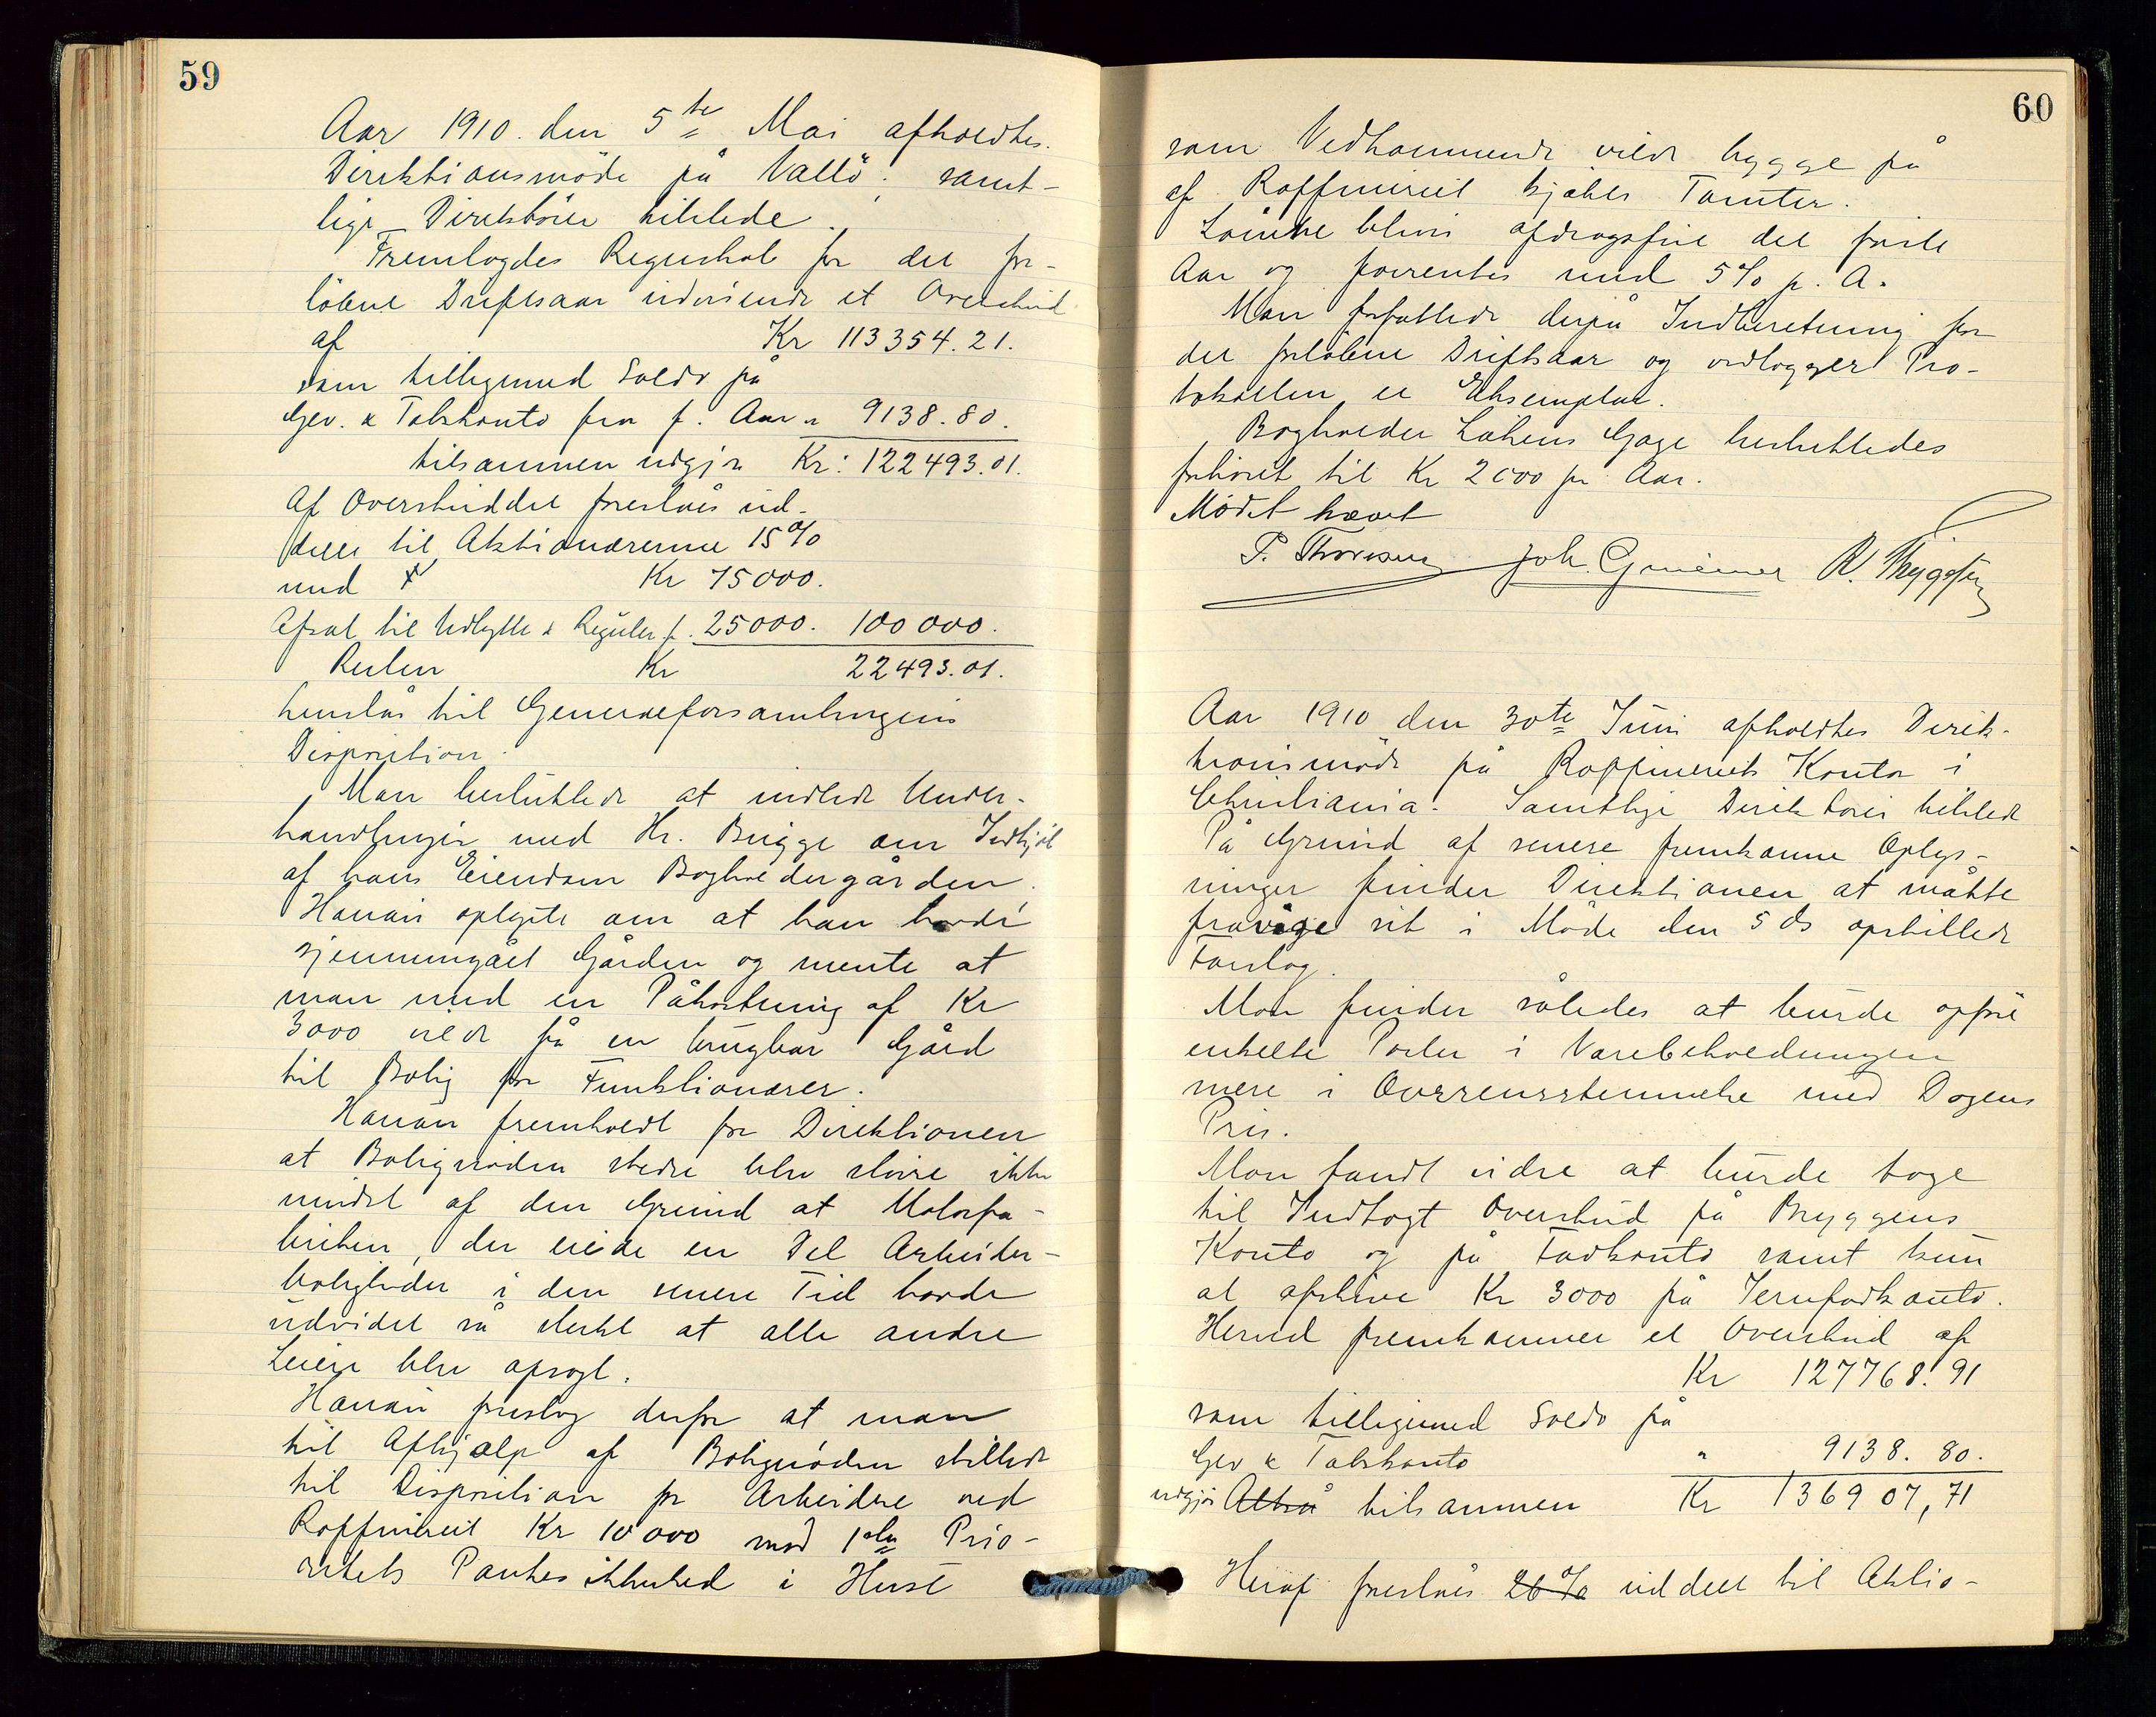 59
Aar 1910. den 5te Mai afholdtes.
Direktionsmöde på Vallö. samt-
lige Direktörer tilstede.
Fremlagdes Regnskab for det for-
löbne Driftsaar udvisende et Overskud
af Kr 113354.21.
som tilligemed Saldo på
Gev. & Tabskonto fra f. Aar " 9138.80.
tilsammen udgjör Kr: 122493.01.
Af Overskuddet foreslåes ud-
delt til Aktionærerne 15%
med Kr 75000.
Afsat til Udbytte & Reguler.f. 25000. 100000.
Resten Kr 22493.01.
henstår til Generalforsamlingens
Disposition.
Man besluttede at indlede Under-
handlinger med Hr. Brügge om Indkjöb
af hans Eiendom Bogholdergården.
Hanan oplyste om at han havde
gjennemgået Gården og mente at
man med en Påkostning af Kr
3000 vilde få en brugbar Gård
til Bolig for Funktionærer.
Hanan fremholdt for Direktionen
at Bolignöden stedse blev större ikke
mindst af den Grund at Motorfa-
briken, der eiede en Del Arbeider-
boligheder i den senere Tid havde
udvidet så sterkt at alle andre
Leiere blev opsagt.
Hanan foreslog derfor at man
til Afhjælp af Bolignöden stillede
til Disposition for Arbeidere ved
Raffineriet Kr 10000 mod 1ste Prio-
ritets Pantesikkerhed i Huse
60
som Vedkommende vilde bygge på
af Raffineriet kjöbte Tomter.
Lånene blive afdragsfrie det förste
Aar og forrentes med 5% p. A.
Man forfattede derpå Indberetning for
det forlöbne Driftsaar og vedlægger Pro-
tokollen et Eksemplar.
Bogholder Lökens Gage besluttedes
forhöiet til Kr 2000 pr. Aar.
Mödet hævet
P. Thoresen Joh. Grüner R. Thygesen
Aar 1910 den 30te Juni afholdtes Direk-
tionsmöde på Raffineriets Kontor i
Christiania. Samtlige Direktörer tilstede
På Grund af senere fremkomne Oplys-
ninger finder Direktionen at måtte
fravige sit i Möde den 5 ds opstillede
Forslag.
Man finder således at burde opföre
enkelte Poster i Varebeholdningen
mere i Overrensstemmelse med Dagens
Pris.
Man fandt vidre at burde tage
til Indtægt Overskud på Bryggens
Konto og på Fadkonto samt kun
at afskrive Kr 3000 på Jernfadkonto.
Herved fremkommer et Overskud af
Kr 127768.91
som tilligemed Saldo på
Gev & Tabskonto " 9138. 80.
udgjör Altså tilsammen Kr 136907,71
Heraf foreslåes 26% uddelt til Aktio-